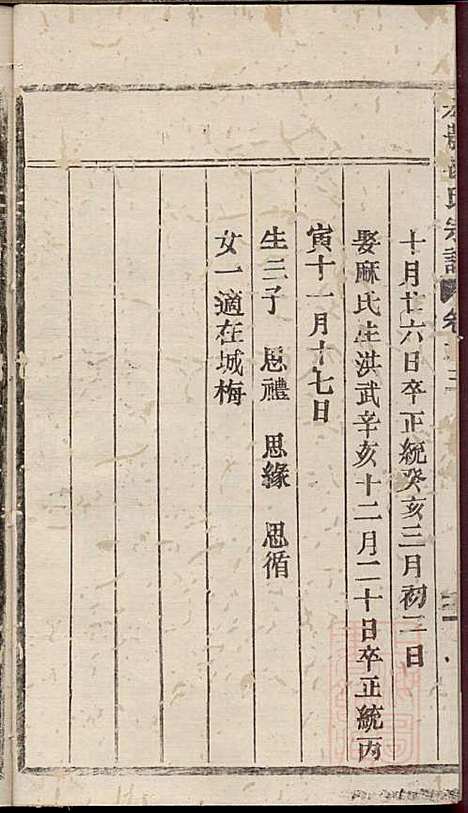 氏宗譜 卷
十月廿六日卒正統癸亥三月初二日
娶麻氏生洪武辛亥十二月二十日卒正統丙
寅十一月十七日
生三子 思禮 思緣 思循
女一適在城梅